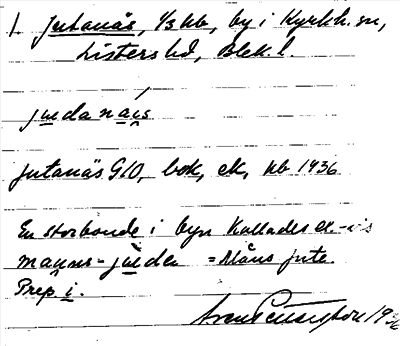 1. Jutanäs, 1/3 kb, by i Kyrkh. sn,
Listers hd, Blek. l.
judanäis
Jutanäs GlO, bok, ek, kb 1936
En storbonde i byn kallades
manns-juden = Måns jute
Prep i.
Sven Pettersson 1936